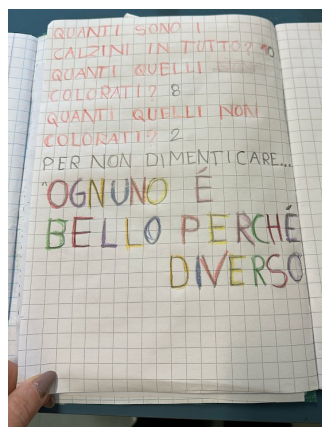 QUANTI SONO I
CALZINI IN TUTTO? 10
QUANTI QUELLI
COLORATI? 8
QUANTI QUELLI NON
COLORATI? 2
PER NON DIMENTICARE...
"OGNUNO É
BELLO PERCHÉ
DIVERSO